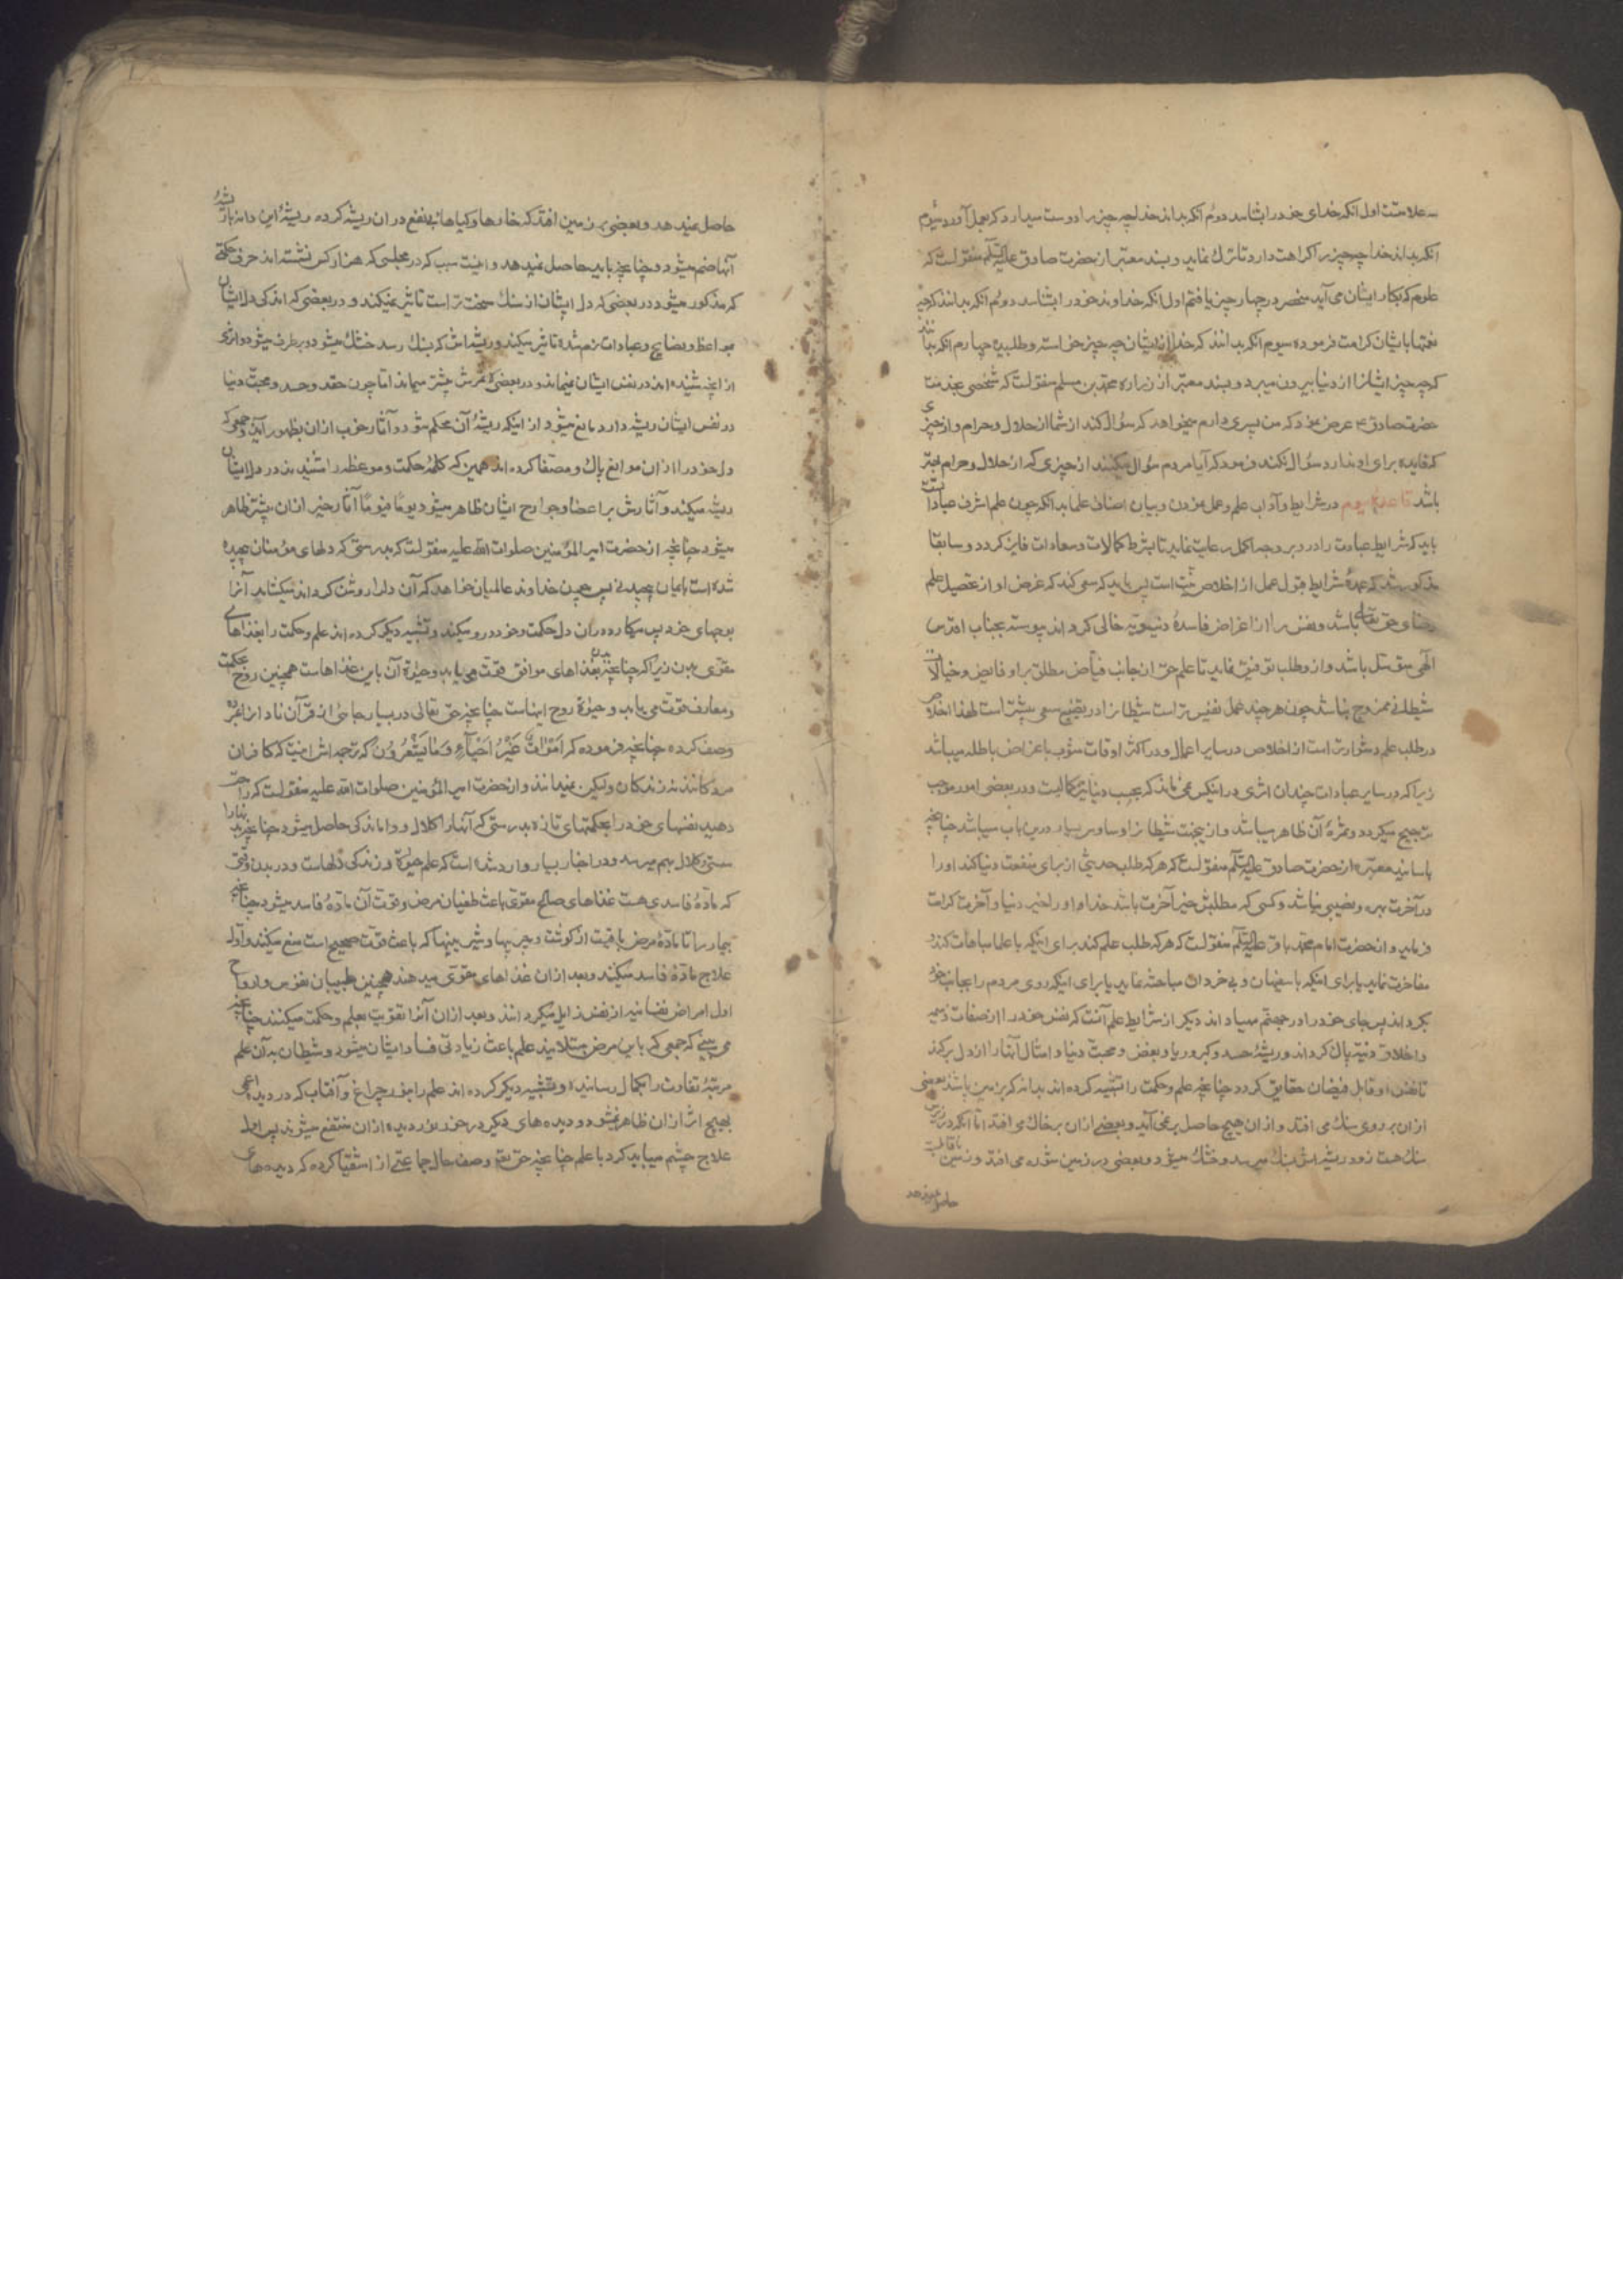 سه علامتست اول انکه خدای خود را بشناسد دوم انکه بداند خدا چه چیز را دوست میدارد که بعمل آورد سیوم
انکه بداند خدا چه چیز را کراهت دارد تا ترك نماید و بسند معتبر از حضرت صادق علیه السلم منقولست که
علوم که بکار ایشان می آید منحصر در چهار چیز یافتم اول انکه خداوند خود را بشناسد دوم انکه بدانند که چه
نعمتها بایشان کرامت فرموده سیوم انکه بدانند که خدا از ایشان چه چیز خواسته و طلبیده چهارم انکه بدانند
که چه چیز ایشانرا از دنیا بیرون میبرد و بسند معتبر از زراره محمد بن مسلم منقولست که شخصی بخدمت
حضرت صادق ع عرض نمود که من پسری دارم میخواهد که سؤال کند از شما از حلال و حرام و از چیزی
که فایده برای او ندارد سؤال نکند فرمود که آیا مردم سؤال میکنند از چیزی که از حلال و حرام بهتر
باشد قاعده سیوم در شرایط و آداب علم و عمل نمودن و بیان اصناف علما بدانکه چون علم اشرف عباداتست
باید که شرایط عبادت را در او بر وجه اکمل رعایت نماید تا بشرط کمالات و سعادات فایز کردد و سابقا
مذکور شد که عمدهٔ شرایط قبول عمل از اخلاص نیّت است پس باید که سعی کند که غرض او از تحصیل علم
رضای حق تعالی باشد و نفس را از اغراض فاسدهٔ دنیویّه خالی کرداند پیوسته بجناب اقدس
الهی متوسّل باشد و از او طلب توفیق نماید تا علم حق از جانب فیّاض مطلق بر او فایض و خیالات
شیطانی ممزوج نباشد چون هر چند عمل نفیس تر است شیطانرا در تضییع سعی بیشتر است لهذا اخلاص
در طلب علم دشوارتر است از اخلاص در سایر اعمال و در اکثر اوقات مشوب باغراض باطله میباشد
زیرا که در سایر عبادات چندان اثری در انکس نمی ماند که بحسب دنیا نیز کمالیست و در بعضی امور موجب
ترجیح میکردد و ثمرهٔ آن ظاهر میباشد و از ینجهت شیطانرا وساوس بسیار درین باب میباشد چنانچه
باسانید معتبره از حضرت صادق علیه السلم منقولست که هر که طلب حدیثی از برای منفعت دنیا کند او را
در آخرت بهره و نصیبی نباشد و کسی که مطلبش خیر آخرت باشد خدا او را خیر دنیا و آخرت کرامت
فرماید و از حضرت امام محمد باقر علیه السلم منقولست که هر که طلب علم کند برای اینکه با علما مباهات کند
مفاخرت نماید یا برای اینکه با سفیهان و بی خردان مباحثه نماید یا برای اینکه روی مردم را بجانب خود
بکرداند پس جای خود را در جهنّم مهیا داند دیکر از شرایط علم آنست که نفس خود را از صفات ذمیمه
و اخلاق دنیّه پاك کرداند و ریشهٔ حسد و کبر و ریا و بغض و محبّت دنیا و امثال آنها را از دل برکند
تا نفس او قابل فیضان حقایق کردد چنانچه علم و حکمت را تشبیه کرده اند بدانه که بر زمین پاشند بعضی
از ان بر روی سنك می افتد و از ان هیچ حاصل بر نمی آید و بعضی از ان بر خاك می افتد امّا انکه در زیرش
سنك هست زود ریشه اش بسنك میرسد و خشك میشود و بعضی در زمین شوره می افتد و زمین
حاصل نمیدهد
حاصل نمیدهد و بعضی بر زمین افتد که خارها و کیاهان بینفع در ان ریشه کرده و ریشهٔ این دانه با ریشهٔ
آنها ضم میشود و چنانچه باید حاصل نمیدهد و اینست سبب که در مجلسی که هزار کس نشسته اند حرف حکمتی
که مذکور میشود در بعضی که دل ایشان از سنك سخت تر است تاثیر نمیکند و در بعضی که اندکی دل ایشان
بمواعظ و نصایح و عبادات نرم شده تاثیر میکند و ریشه اش که بسنك رسد خشك میشود و برطرف میشود و اثری
از انچه شنیده اند در نفس ایشان نمیماند و در بعضی ثمرش بیشتر میماند امّا چون حقد و حسد و محبّت دنیا
در نفس ایشان ریشه دارد مانع میشود از اینکه ریشهٔ آن محکم شود و آثار خوب از ان بظهور آید و جمعی که
دل خود را از ان موانع پاك و مصفّا کرده اند همین که کلمهٔ حکمت و موعظه را شنیدند در دل ایشان
ریشه میکند و آثارش بر اعضا و جوارح ایشان ظاهر میشود یومًا فیومًا آثار خیر از ان بیشتر ظاهر
میشود چنانچه از حضرت امیر المؤمنین صلوات الله علیه منقولست که بدرستی که دلهای مؤمنان پیچیده
شده است بایمان پیچیدنی پس چون خداوند عالمیان خواهد که آن دلرا روشن کرداند میکشاید آنرا
بوحیهای خود پس میکارد در ان دل حکمت و خود درو میکند و تشبیه دیکر کرده اند علم و حکمت را بغذاهای
مقوّی بدن زیرا که چنانچه بدن بغذاهای موافق قوّت می یابد و حیوة آن باین غذاهاست همچنین روح بحکمت
و معارف قوّت می یابد و حیوة روح اینهاست چنانچه حق تعالی در بسیار جائی از قرآن نادانرا بمرده
وصف کرده چنانچه فرموده که اَمْوٰاتٌ غَیْرُ اَحْیٰآءٍ وَمٰا یَشْعُرُونَ که ترجمه اش اینست که کافران
مردکانند نه زندکان ولیکن نمیدانند و از حضرت امیر المؤمنین صلوات الله علیه منقولست که راحت
دهید نفسهای خود را بحکمتهای تازه بدرستی که آنها را کلال و واماندکی حاصل میشود چنانچه بدنها را
سستی و کلال بهم میرسد و در اخبار بسیار وارد شده است که علم حیوة و زندکی دلهاست و در بدن وقتی
که مادّهٔ فاسدی هست غذاهای صالح مقوّی باعث طغیان مرض و قوّت آن مادّهٔ فاسد میشود چنانچه
بیمار را تا مادّهٔ مرض باقیست از کوشت و چربیها و شیرینیها که باعث قوّت صحیح است منع میکنند و اوّل
علاج مادّهٔ فاسد میکنند و بعد از ان غذاهای مقوّی میدهند همچنین طبیبان نفوس و ارواح
اول امراض نفسانیه از نفس زایل میکردانند و بعد از ان آنرا تقویت بعلم و حکمت میکنند چنانچه
می بینی که جمعی که باین مرض مبتلایند علم باعث زیادتی فساد ایشان میشود و شیطان به آن علم
مرتبهٔ شقاوت را بکمال رسانیده و تشبیه دیکر کرده اند علم را بنور چراغ و آفتاب که در دیده اعمی
بهیچ اثر از ان ظاهر نمیشود و دیده های دیکر در خور نور دیده از ان منتفع میشوند پس اول
علاج چشم میباید کرد با علم چنانچه حق تع وصف حال جماعتی از اشقیا کرده که دیده های